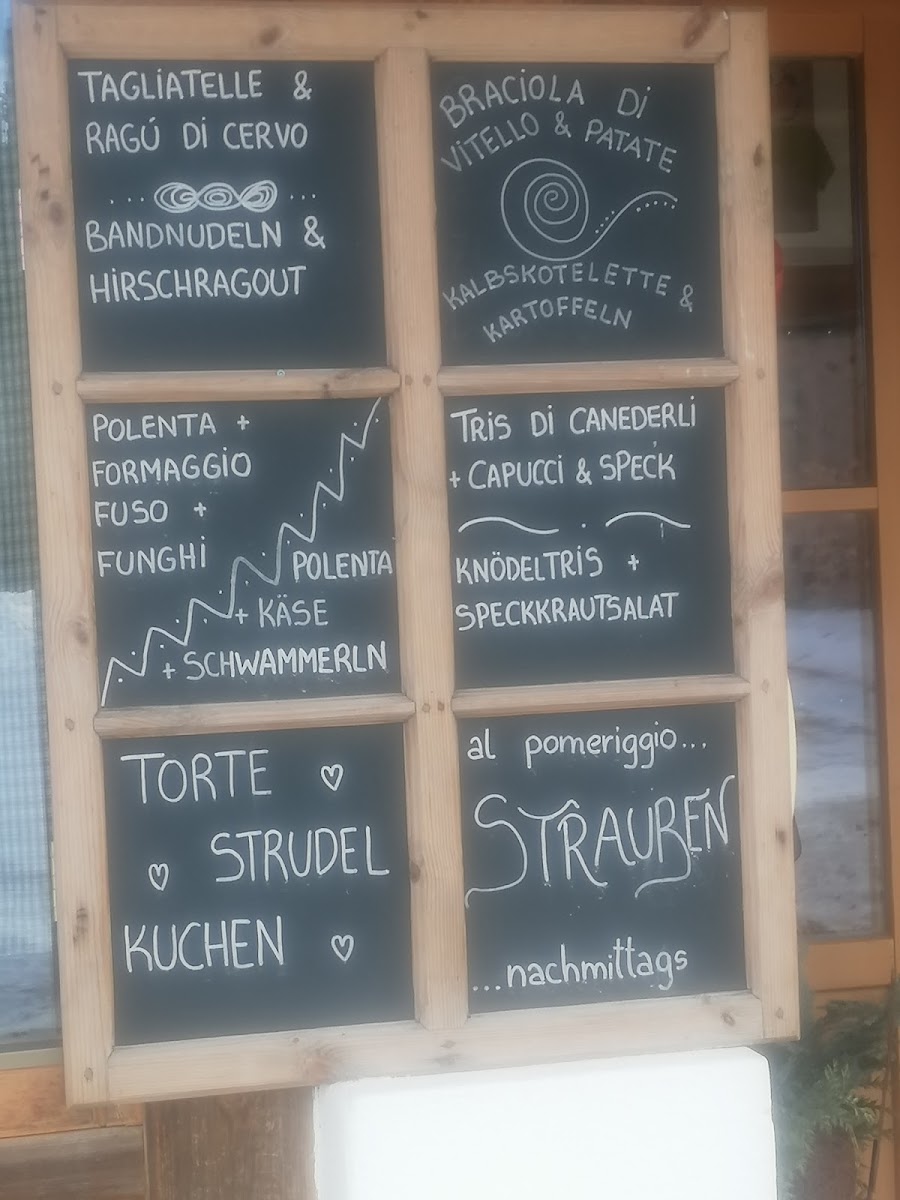 TAGLIATELLE &
RAGÚ DI CERVO
BANDNUDELN &
HIRSCHRAGOUT
BRACIOLA DI
VITELLO & PATATE
KALBSKOTELETTE &
KARTOFFELN
POLENTA +
FORMAGGIO
FUSO +
FUNGHI
POLENTA
+ KÄSE
+ SCHWAMMERLN
TRIS DI CANEDERLI
+ CAPUCCI & SPECK
KNÖDELTRIS +
SPECKKRAUTSALAT
TORTE
STRUDEL
KUCHEN
al pomeriggio...
STRAUBEN
...nachmittags